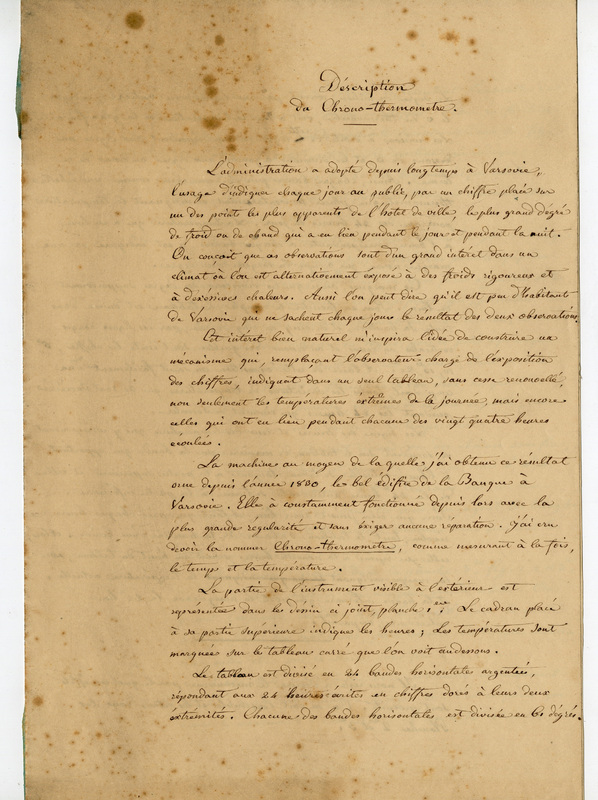 Déscription
du Chrono-thermometre.
L'administration a adopté depuis longtemps à Varsovie,
l'usage d'indiquer chaque jour au public, par un chiffre placé sur
un des points les plus apparents de l'hôtel de ville, le plus grand dégré
de froid ou de chaud qui a eu lieu pendant le jour et pendant la nuit.
On conçoit que ces observations sont d'un grand intérêt dans un
climat où l'on est alternativement exposé à des froids rigoureux et
à d'excessives chaleurs. Aussi l'on peut dire qu'il est peu d'habitants
de Varsovie qui ne sachent chaque jour le résultat des deux observations.
Cet intérêt bien naturel m'inspira l'idée de construire un
mécanisme qui, remplaçant l'observateur chargé de l'exposition
des chiffres, indiquent dans un seul tableau, sans cesse renouvellé,
non seulement les températures éxtrêmes de la journée, mais encore
celles qui ont eu lieu pendant chacune des vingt quatre heures
écoulées.
La machine au moyen de la quelle j'ai obtenu ce résultat
orne depuis l'année 1830, le bel édifice de la Banque à
Varsovie. Elle à constamment fonctionné depuis lors avec la
plus grande régularité et sans éxiger aucune réparation. J'ai cru
devoir la nommer Chrono-thermometre, comme mesurant à la fois,
le temps et la température.
La partie de l'instrument visible à l'extérieur est
représentée dans le désin ci joint, planche 1ère. Le cadran placé
à sa partie supérieure indique les heures; Les températures sont
marquées sur le tableau carré que l'on voit audessous.
Le tableau est divisé en 24 bandes horisontales argentées,
répondant aux 24 heures écrites en chiffres dorés à leurs deux
éxtrémités. Chacune des bandes horisontales est divisée en 60 dégrés.